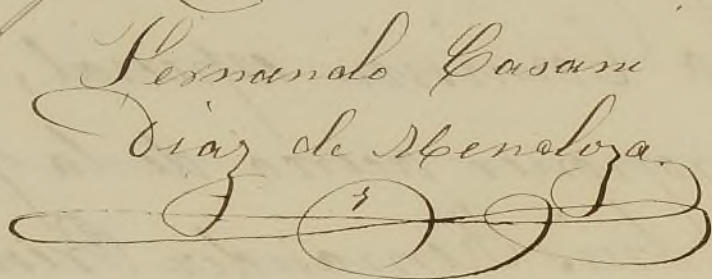 Fernando Casani
Diaz de Mendoza